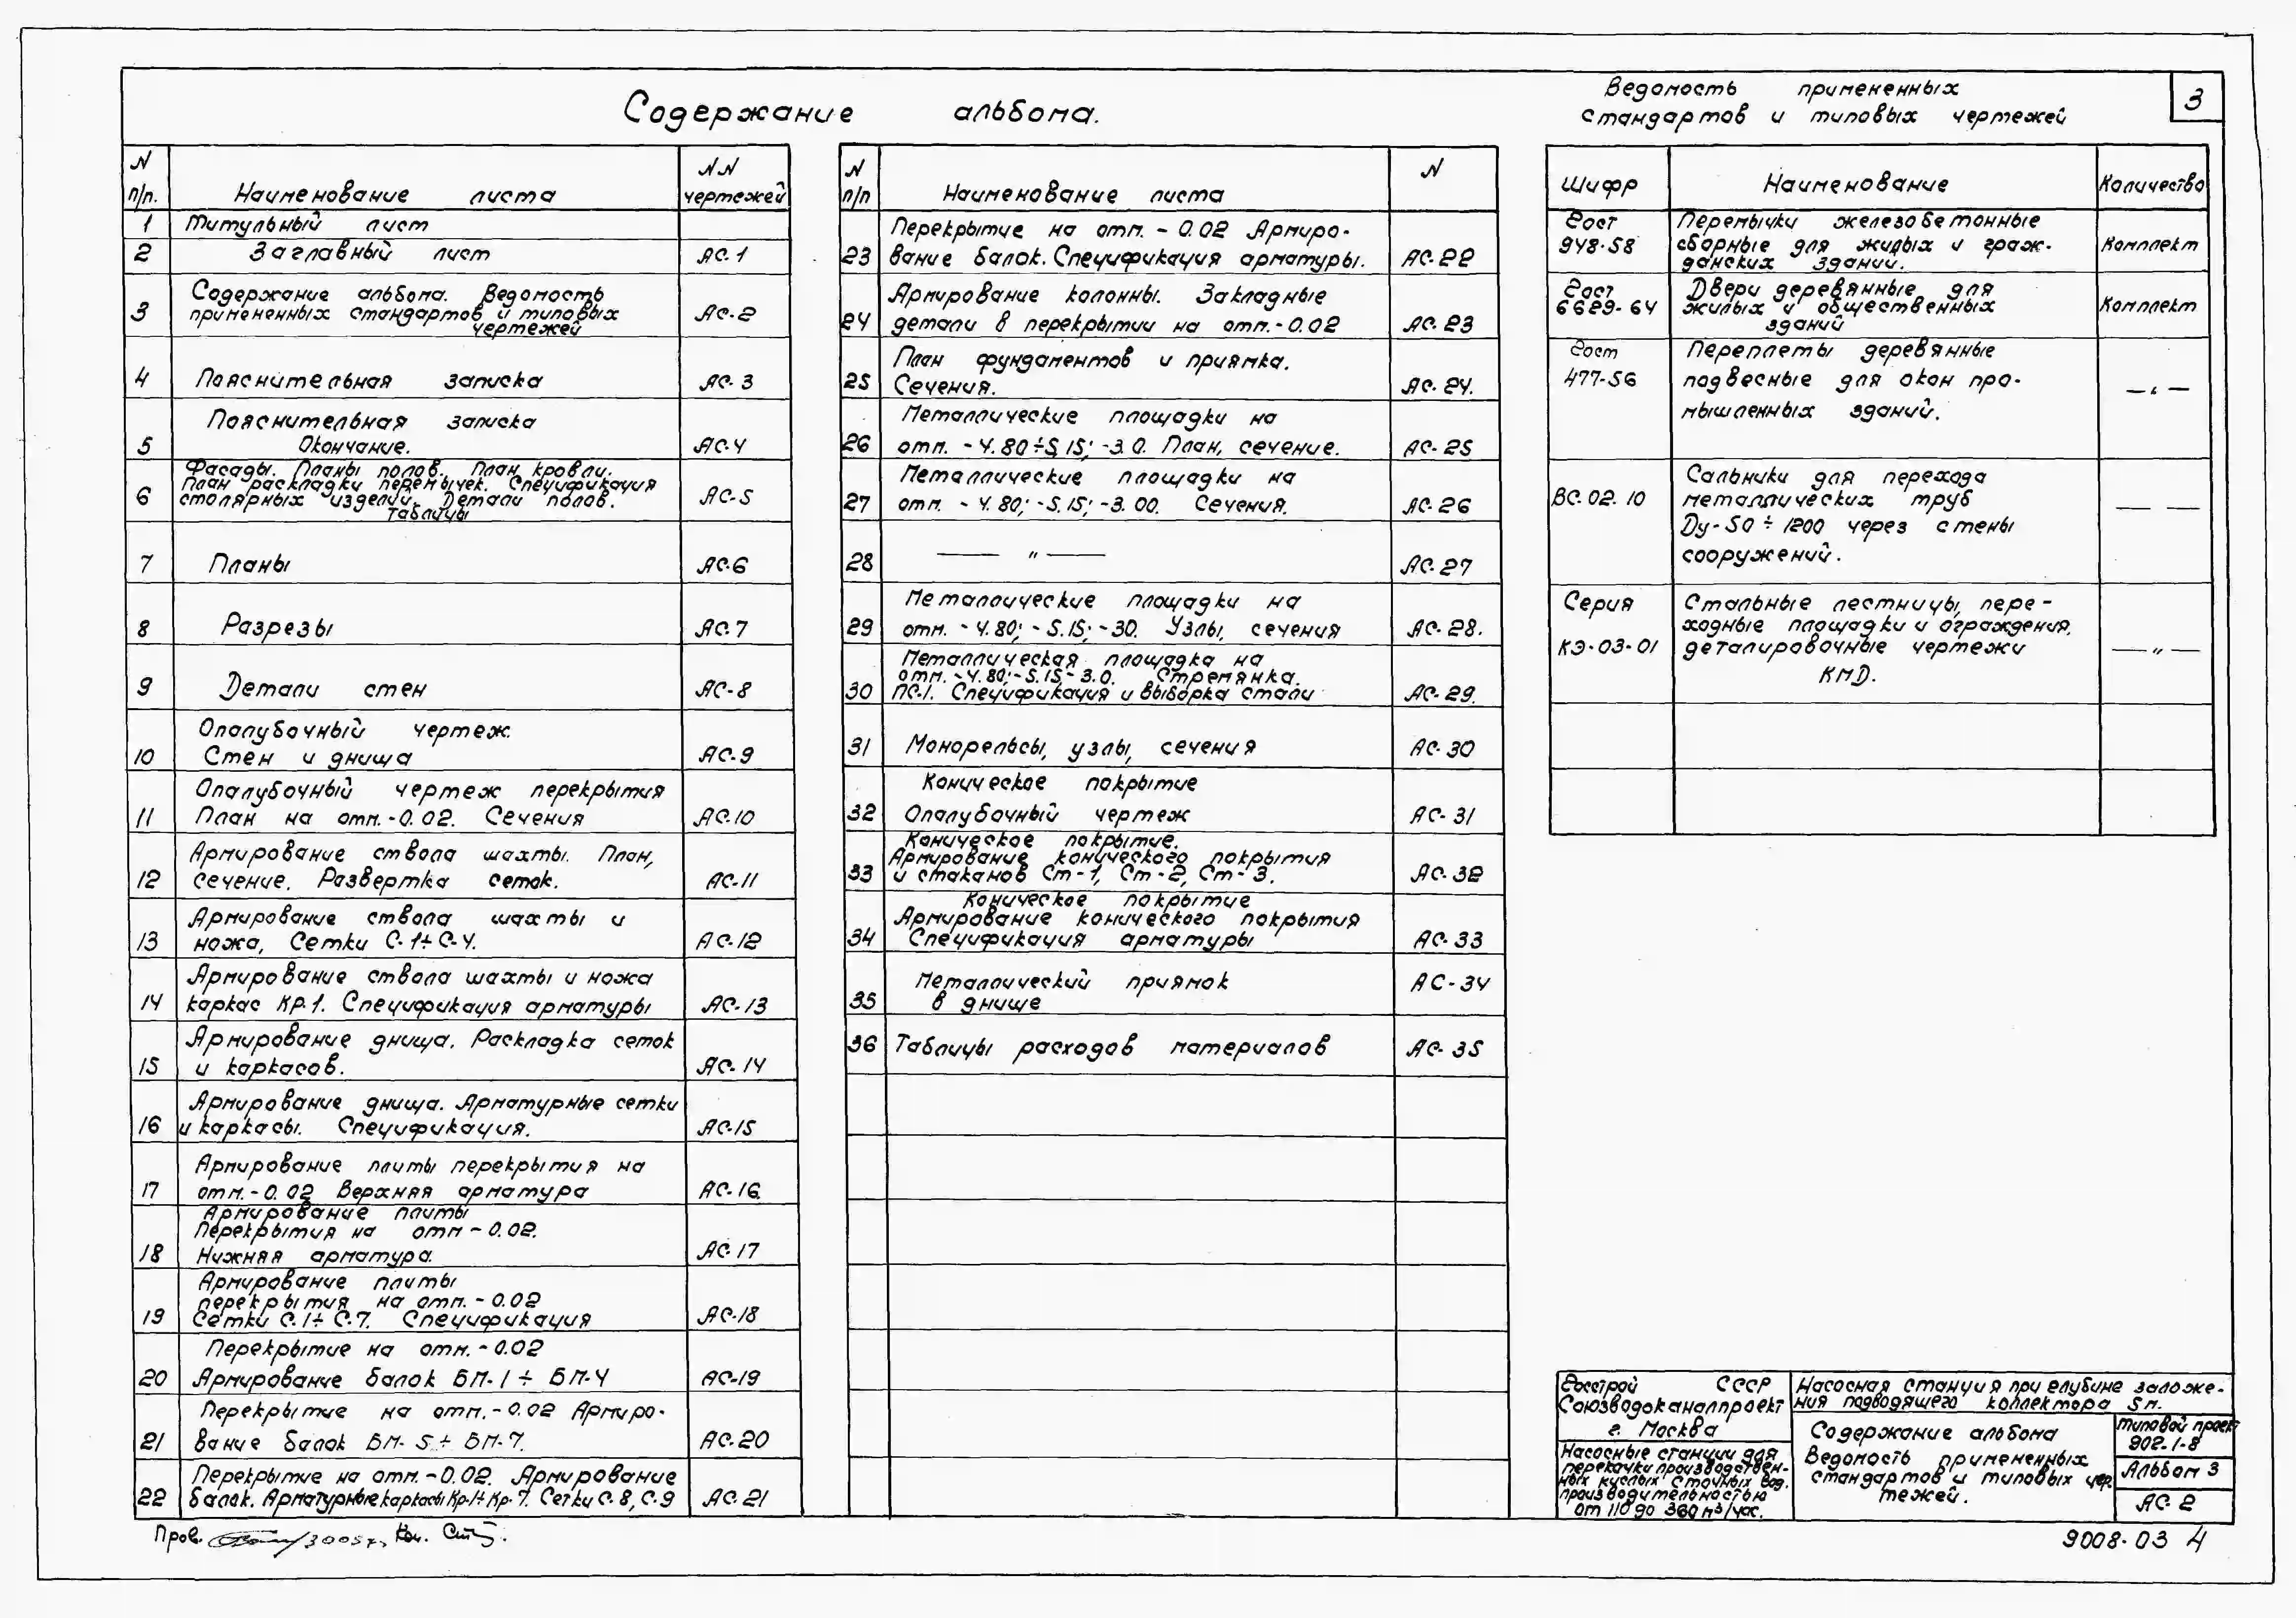 Содержание альбома.
Ведомость примененных
стандартов и типовых чертежей
3
N п/п. Наименование листа NN чертежей
1 Титульный лист
2 Заглавный лист АС-1
Содержание альбома. Ведомость
3 примененных стандартов и типовых АС-2
чертежей
4 Пояснительная записка АС-3
Пояснительная записка
5 Окончание. АС-4
Фасады. Планы полов. План кровли.
План раскладки перемычек. Спецификация
6 столярных изделий. Детали полов. АС-5
Таблицы
7 Планы АС-6
8 Разрезы АС-7
9 Детали стен АС-8
Опалубочный чертеж.
10 Стен и днища АС-9
Опалубочный чертеж перекрытия
11 План на отм.-0.02. Сечения АС-10
Армирование ствола шахты. План,
12 сечение. Развертка сеток. АС-11
Армирование ствола шахты и
13 ножа, Сетки С-1÷С-4. АС-12
Армирование ствола шахты и ножа
14 каркас КР-1. Спецификация арматуры АС-13
Армирование днища. Раскладка сеток
15 и каркасов. АС-14
Армирование днища. Арматурные сетки
16 и каркасы. Спецификация. АС-15
Армирование плиты перекрытия на
17 отм.-0.02 Верхняя арматура АС-16
Армирование плиты
Перекрытия на отм-0.02.
18 Нижняя арматура. АС-17
Армирование плиты
перекрытия на отм.-0.02
19 Сетки С-1÷С-7. Спецификация АС-18
Перекрытие на отм.-0.02
20 Армирование балок БМ-1÷БМ-4 АС-19
Перекрытие на отм.-0.02 Армиро-
21 вание балок БМ-5÷БМ-7. АС-20
Перекрытие на отм.-0.02. Армирование
22 балок. Арматурные каркасы Кр-1÷Кр-7. Сетки С-8, С-9 АС-21
N п/п Наименование листа N
Перекрытие на отм.-0.02 Армиро-
23 вание балок. Спецификация арматуры. АС-22
Армирование колонны. Закладные
24 детали в перекрытии на отм.-0.02 АС-23
План фундаментов и приямка.
25 Сечения. АС-24.
Металлические площадки на
26 отм. -4.80÷5.15; -3.0. План, сечение. АС-25
Металлические площадки на
27 отм. -4.80; -5.15; -3.00. Сечения. АС-26
28 — " — АС-27
Металлические площадки на
29 отм. -4.80; -5.15; -30. Узлы, сечения АС-28.
Металлическая площадка на
отм. -4.80; -5.15; -3.0. Стремянка.
30 ПС-1. Спецификация и выборка стали АС-29.
31 Монорельсы, узлы, сечения АС-30
Коническое покрытие
32 Опалубочный чертеж АС-31
Коническое покрытие.
Армирование конического покрытия
33 и стаканов Ст-1, Ст-2, Ст-3. АС-32
Коническое покрытие
Армирование конического покрытия
34 Спецификация арматуры АС-33
Металлический приямок АС-34
35 в днище
36 Таблицы расходов материалов АС-35
Шифр Наименование Количество
Гост Перемычки железобетонные
948-58 сборные для жилых и граж- Комплект
данских зданий.
Гост Двери деревянные для
6629-64 жилых и общественных Комплект
зданий
Гост Переплеты деревянные
477-56 подвесные для окон про- — " —
мышленных зданий.
Сальники для перехода
ВС-02-10 металлических труб — —
Ду-50÷1200 через стены
сооружений.
Серия Стальные лестницы, пере-
ходные площадки и ограждения,
КЭ-03-01 деталировочные чертежи — " —
КМД.
Госстрой СССР
Союзводоканалпроект
г. Москва
Насосные станции для
перекачки производствен-
ных кислых сточных вод.
производительностью
от 110 до 360 м³/час.
Насосная станция при глубине заложе-
ния подводящего коллектора 5м.
Содержание альбома
Ведомость примененных
стандартов и типовых чер
тежей.
Типовой проект
902-1-8
Альбом 3
АС-2
Пров.
9008-03 4